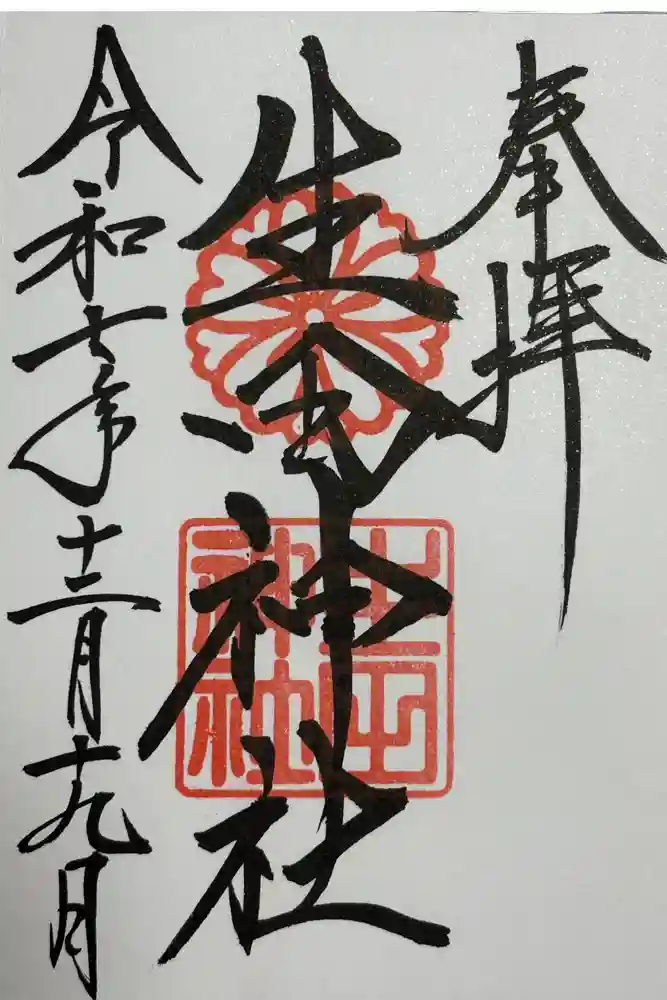 奉拝
生 神社
神社
令和七年十二月十九日